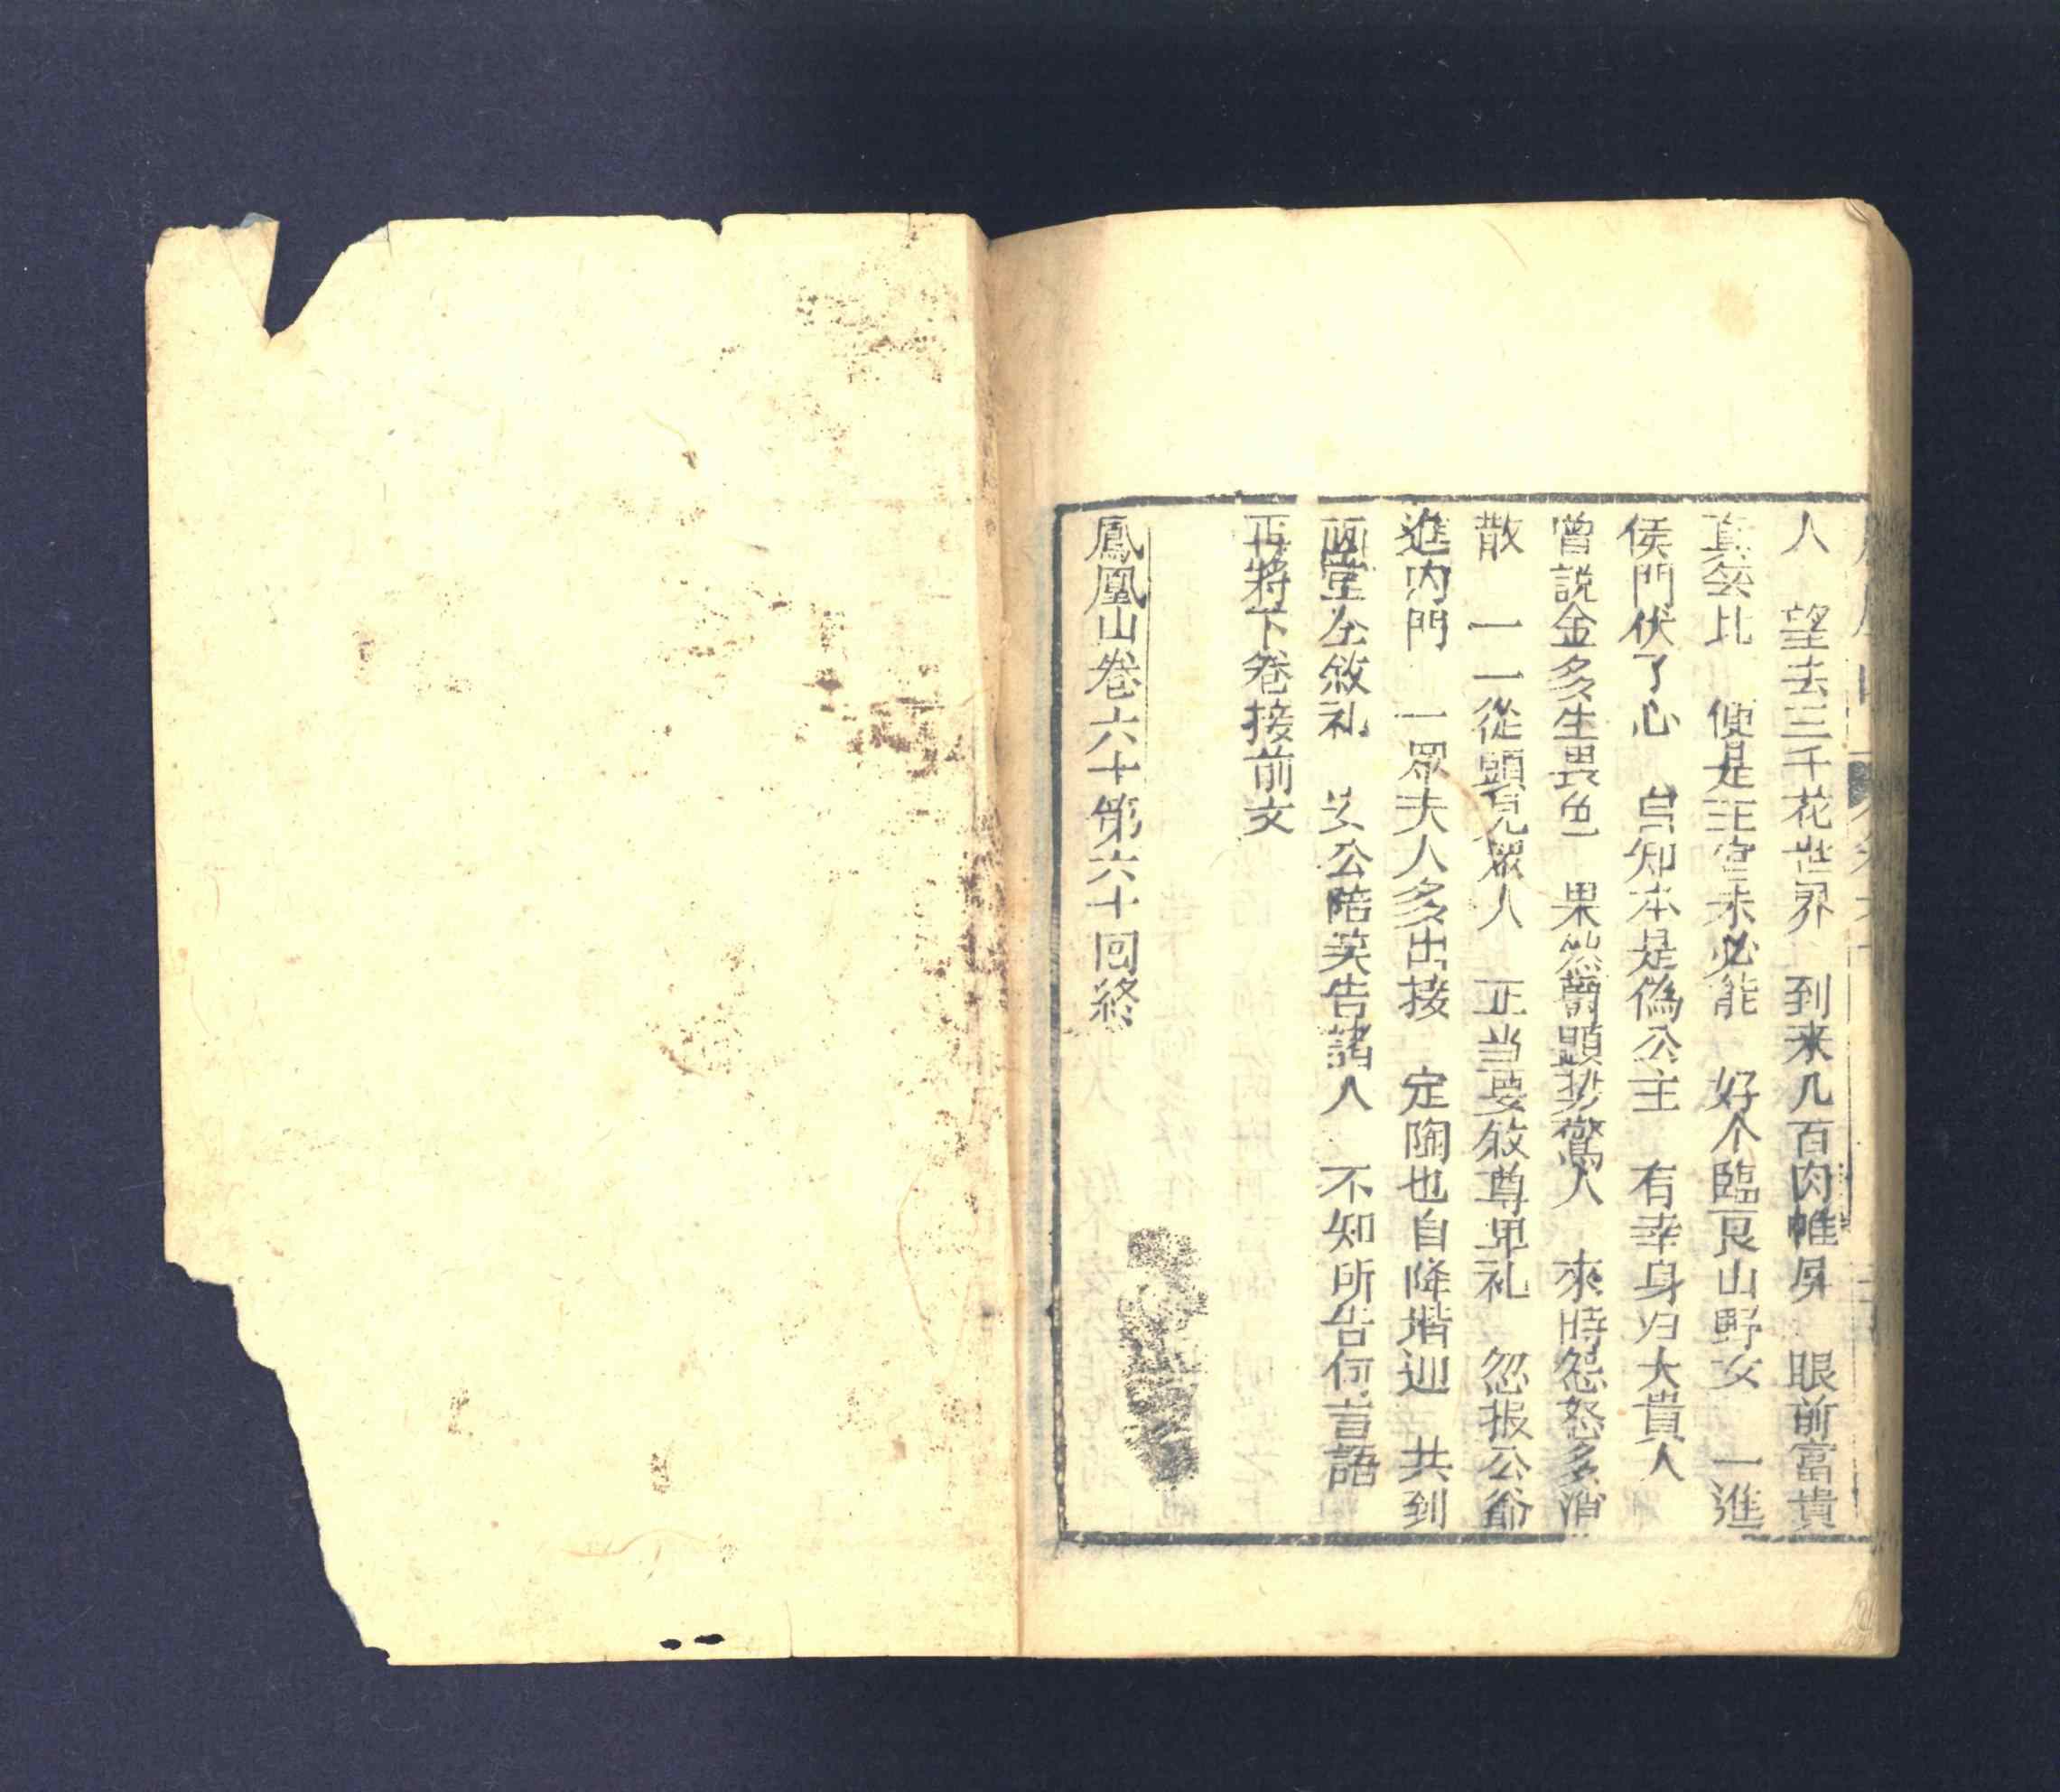 人　望去三千花世界　到来几百肉帷屏　眼前富貴
真堪比　便是王宮未必能　好个臨良山野女　一進
侯門伏了心　自知本是偽公主　有幸身归大貴人
曾説金多生畏色　果然爵顕势驚人　來時怨怒多消
散　一一從頭見眾人　正当要敘尊卑礼　忽报公爺
進内門　一眾夫人多出接　定陶也自降堦迎　共到
画堂左敘礼　公陪笑告諸人　不知所告何言語
再將下卷接前文
鳳凰山卷六十第六十回終